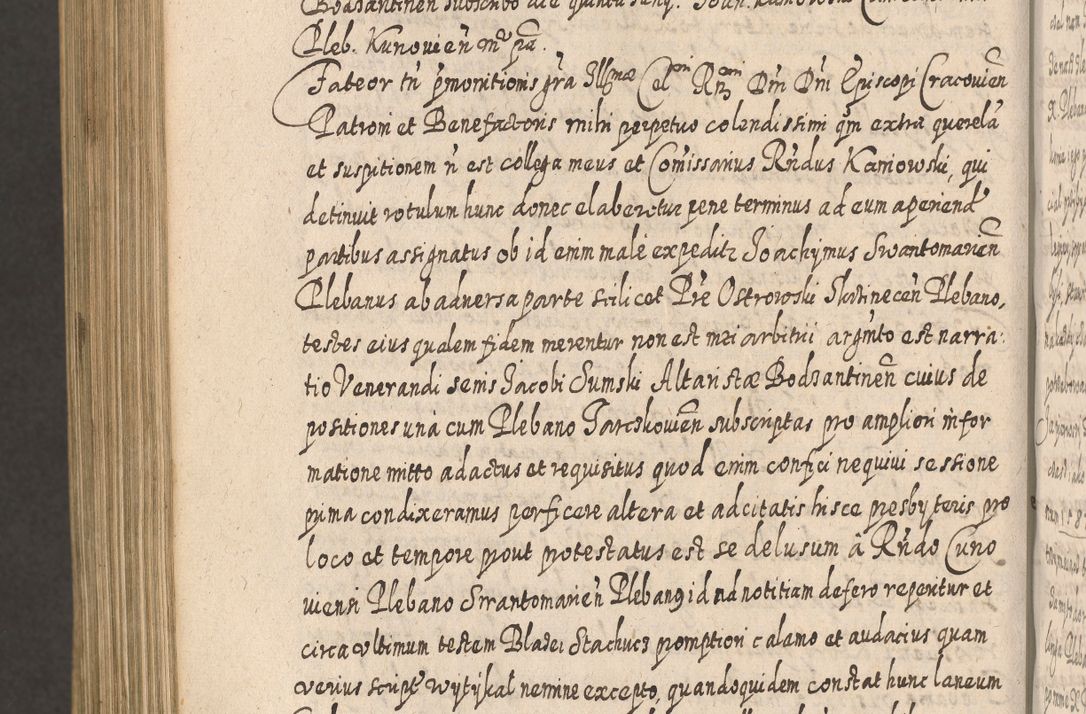 Pleb. Kunovien̄ mp̄ p̄a.
Fateor tn̄ p̄monitionis gr̄a Illmæ Cel Rm Dm̄ Dm̄ Episcopi Cracovien̄
Patroni et Benefactoris mihi perpetuo colendissimi qm̄ extra querelā
et suspitionem n̄ est collega meus et Com̄issarius Rn̄dus Kamowski, qui
detinuit rotulum hunc donec elaberetur pene terminus ad eum aperiend
partibus assignatus ob id enim male expedit Joachymus Swantomarien̄
Plebanus ab adversa parte scilicet Pr̄e Ostrowski Skotinecen̄ Plebano,
testes eius qualem fidem merentur non est mei arbitrii argm̄to est narra
tio Venerandi senis Jacobi Sumski Altaristæ Bodzantinen̄ cuius de
positiones una cum Plebano Tarczkovien̄ subscriptas pro ampliori infor
matione mitto adactus et requisitus quod enim confici nequivi sessione
prima condixeramus perficere altera et adcitatis hisce presbyteris pro
loco et tempore prout protestatus est se delusum â Rn̄do Cuno
viensi Plebano Swantomarien̄ Plebanq id ad notitiam defero reperitur et
circa ultimum testem Blasei Stachucz promptiori calamo et audacius quam
verius script wytykal nemine excepto, quandoquidem constat hunc laneum